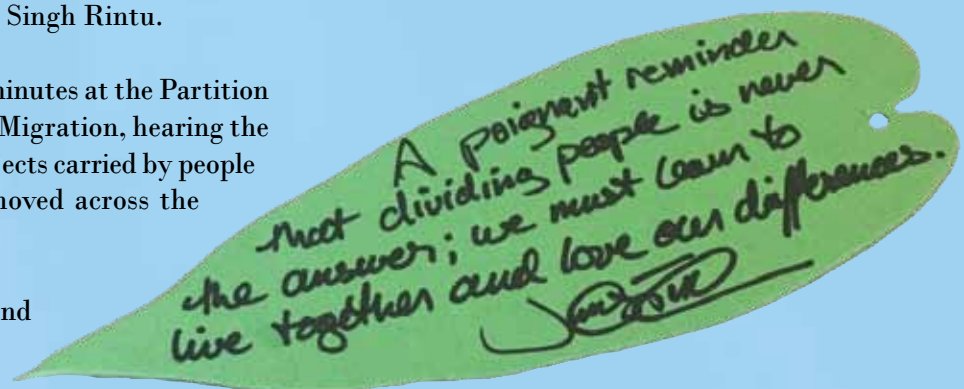 Singh Rintu.
minutes at the Partition
Migration, hearing the
jects carried by people
moved across the
nd
A poignant reminder
that dividing people is never
the answer; we must learn to
live together and love our differences.